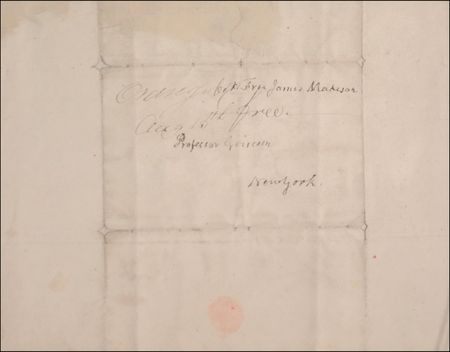 Orange Free James Madison
free.
Professor Griscom
New York.